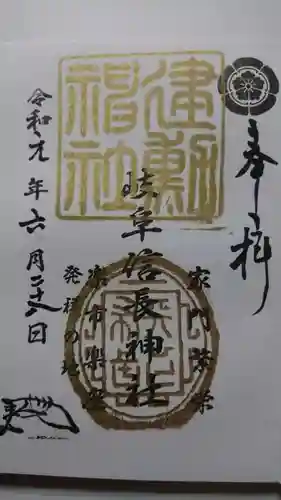 奉拝
建勲
神社
岐阜信長神社
家門繁栄
楽市楽座
発祥の地
令和元年六月二十八日